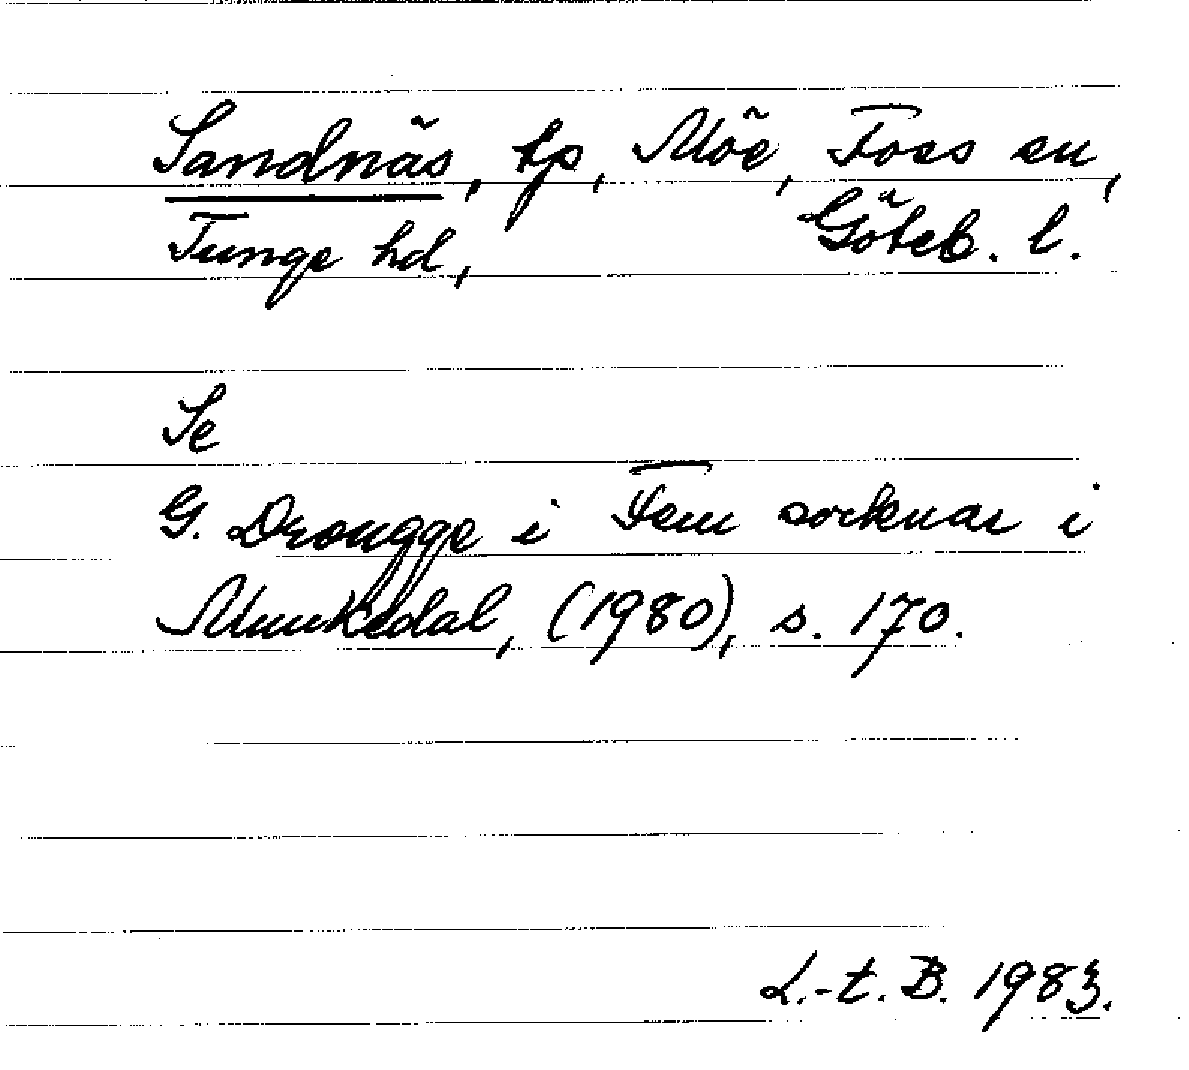 Sandnäs, tp, Möe, Foss sn,
Tunge hd, Göteb. l.
Se
G. Drougge i Fem socknar i
Munkedal, (1980), s. 170.
L.-t. B. 1983.